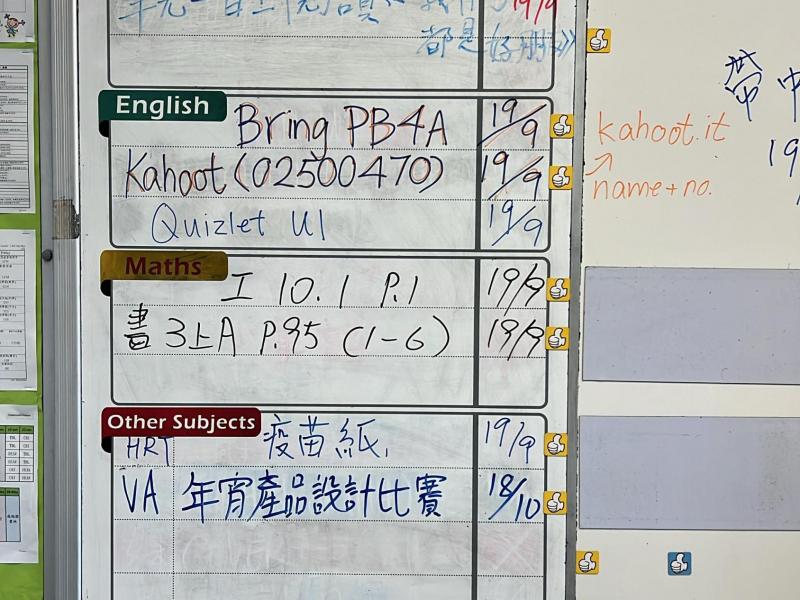 19/9
都是好朋友》
English
Bring PB4A 19/9
Kahoot (02500470) 19/9
Quizlet U1 19/9
kahoot.it
name+no.
Maths
工 10.1 P.1 19/9
書 3上A P.95 (1-6) 19/9
Other Subjects
HRT 疫苗紙 19/9
VA 年宵產品設計比賽 18/10
帶中
19